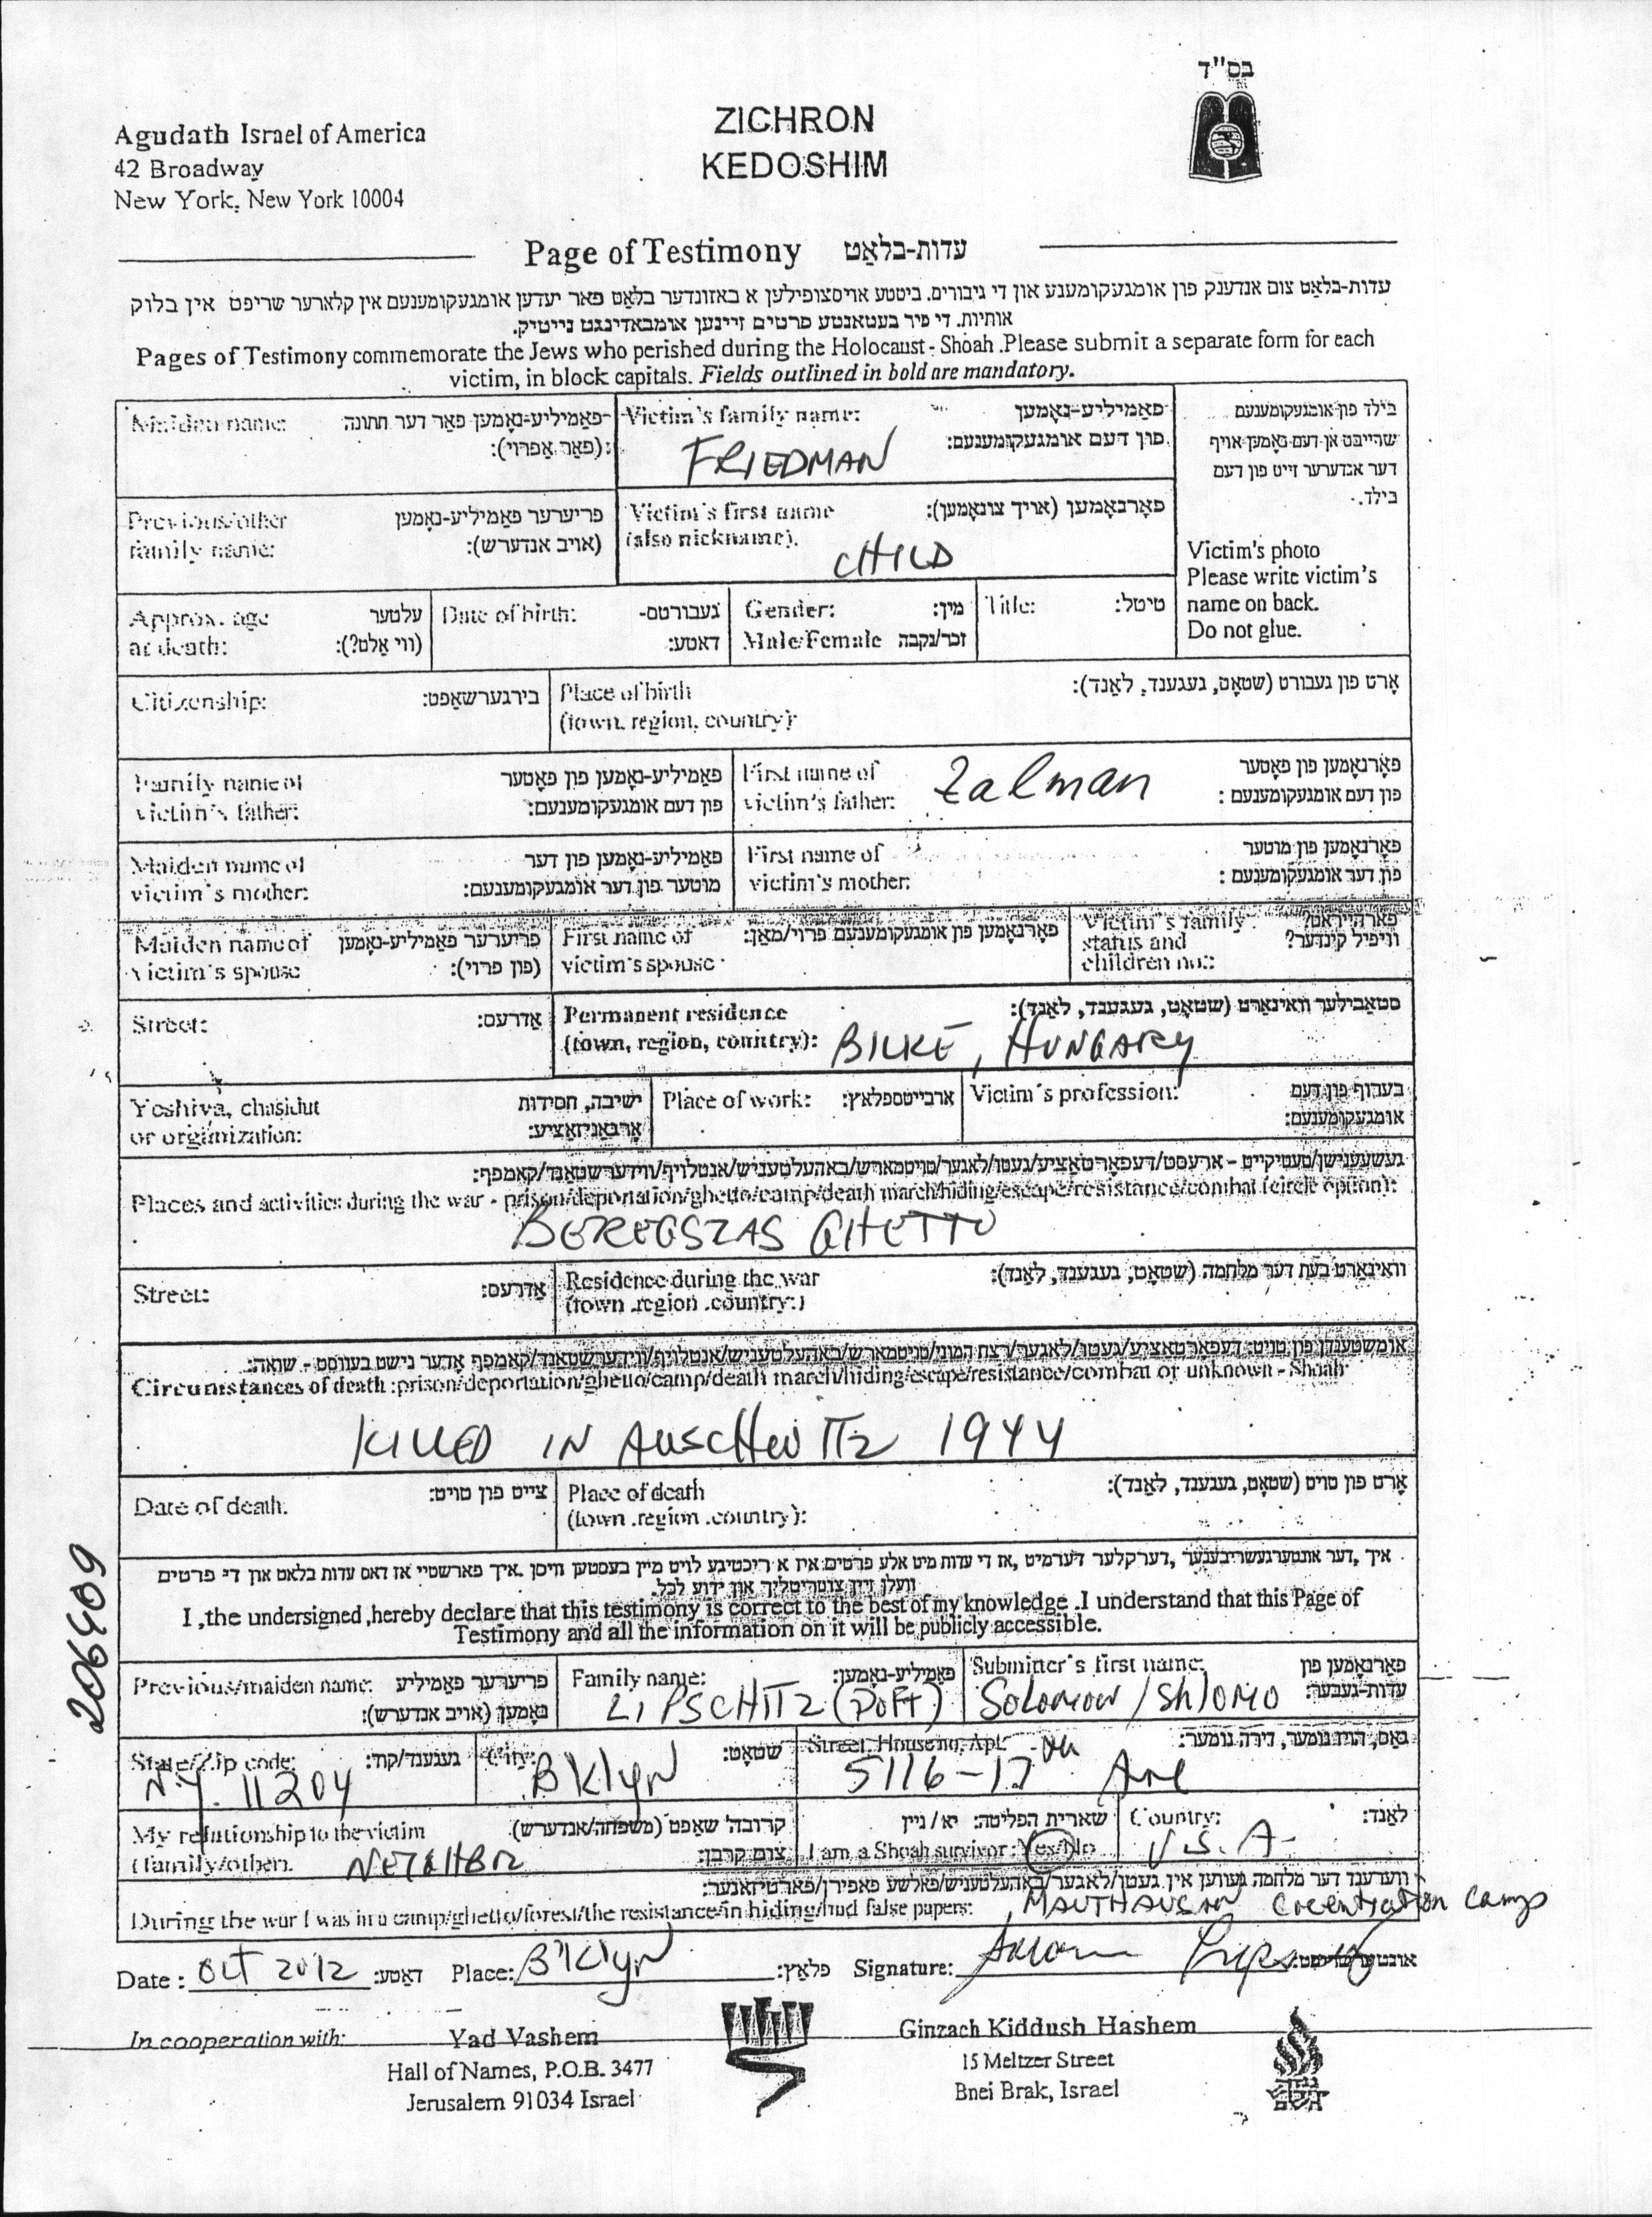 בס"ד
Agudath Israel of America
42 Broadway
New York, New York 10004
ZICHRON
KEDOSHIM
Page of Testimony עדות-בלאַט
עדות-בלאַט צום אנדענק פון אומגעקומענע און די גיבורים. ביטע אויסצופילען א באזונדער בלאַט פאר יעדען אומגעקומענעם אין קלארער שריפט אין בלוק
אותיות. די פיר בעטאנטע פרטים זיינען אומבאדינגט נייטיק.
Pages of Testimony commemorate the Jews who perished during the Holocaust - Shoah .Please submit a separate form for each
victim, in block capitals. Fields outlined in bold are mandatory.
Maiden name: פאַמיליע-נאָמען פאר דער חתונה
(פאַר אַפרוי):
Victim's family name: פאַמיליע-נאָמען
פון דעם אומגעקומענעם:
FRIEDMAN
בילד פון אומגעקומענעם
שרייבט אן דעם נאָמען אויף
דער אנדערער זייט פון דעם
בילד.
Victim's photo
Please write victim's
name on back.
Do not glue.
Previous/other פריערער פאַמיליע-נאָמען
family name: (אויב אנדערש):
Victim's first name פאָרנאָמען (אויך צונאָמען):
(also nickname).
CHILD
Approx. age עלטער
at death: (ווי אַלט?):
Date of birth: געבורטס-
דאַטע:
Gender: מין:
Male/Female זכר/נקבה
Title: טיטל:
Citizenship: בירגערשאַפט:
Place of birth אָרט פון געבורט (שטאָט, געגענד, לאַנד):
(town, region, country):
Family name of פאַמיליע-נאָמען פון פאָטער
victim's father: פון דעם אומגעקומענעם:
First name of פאָרנאָמען פון פאָטער
victim's father: פון דעם אומגעקומענעם :
Zalman
Maiden name of פאַמיליע-נאָמען פון דער
victim's mother: מוטער פון דער אומגעקומענעם:
First name of פאָרנאָמען פון מוטער
victim's mother: פון דער אומגעקומענעם :
Maiden name of פריערער פאַמיליע-נאָמען
victim's spouse (פון פרוי):
First name of פאָרנאָמען פון אומגעקומענעם פרוי/מאַן:
victim's spouse
Victim's family פארהייראט?
status and וויפיל קינדער?
children no.:
Street: אַדרעס:
Permanent residence סטאַבילער וואוינאָרט (שטאָט, געגענד, לאַנד):
(town, region, country): BILKE, HUNGARY
Yeshiva, chasidut ישיבה, חסידות
or organization: אָרגאַניזאַציע:
Place of work: ארבייטספּלאַץ:
Victim's profession: בערוף פון דעם
אומגעקומענעם:
געשעענישן/טעטיקייט - ארעסט/דעפּאָרטאַציע/געטו/לאַגער/טויטמארש/באהעלטעניש/אנטלויף/ווידערשטאַנד/קאַמפּף:
Places and activities during the war - prison/deportation/ghetto/camp/death march/hiding/escape/resistance/combat (circle option):
BEREGSZAS GHETTO
Street: אַדרעס:
Residence during the war וואוינאָרט בעת דער מלחמה (שטאָט, געגענד, לאַנד):
(town .region .country:)
אומשטענדן פון טויט: דעפּאָרטאַציע/געטו/לאַגער/רצח המוני/טויטמארש/באהעלטעניש/אנטלויף/ווידערשטאַנד/קאַמפּף אָדער נישט בעוואוסט - שואה:
Circumstances of death :prison/deportation/ghetto/camp/death march/hiding/escape/resistance/combat or unknown - Shoah
KILLED IN AUSCHWITZ 1944
Date of death. צייט פון טויט:
Place of death אָרט פון טויט (שטאָט, געגענד, לאַנד):
(town .region .country):
איך ,דער אונטערגעשריבענער ,דערקלער דערמיט ,אז די עדות מיט אלע פרטים אין א ריכטיגע לויט מיין בעסטען וויסן .איך פארשטיי אז דאס עדות בלאט און די פרטים
וועלן זיין צוטריטליך און ידוע לכל.
I ,the undersigned ,hereby declare that this testimony is correct to the best of my knowledge .I understand that this Page of
Testimony and all the information on it will be publicly accessible.
Previous/maiden name: פריערער פאַמיליע
נאָמען (אויב אנדערש):
Family name: פאַמיליע-נאָמען:
LIPSCHITZ (DOFT)
Submitter's first name: פאָרנאָמען פון
עדות-געבער:
SOLOMON / SHLOMO
State/Zip code: געגענד/קוד:
N.Y. 11204
City: שטאָט:
BKlyN
Street, House no, Apt. גאַס, הויז נומער, דירה נומער:
5116-17th Ave
My relationship to the victim קרובה'שאַפט (משפחה/אנדערש)
(family/other). צום קרבן:
NEIGHBOR
שארית הפליטה: יא/ניין
I am a Shoah survivor: Yes/No
Country: לאַנד:
U.S.A.
ווערענד דער מלחמה געווען אין געטו/לאַגער/באהעלטעניש/פאלשע פאפירן/פארטיזאנער:
During the war I was in a camp/ghetto/forest/the resistance/in hiding/had false papers: MAUTHAUSAN Cocentration Camp
Date : Oct 2012 דאַטע: Place: B'Klyn פּלאַץ: Signature:
206409
In cooperation with:
Yad Vashem
Hall of Names, P.O.B. 3477
Jerusalem 91034 Israel
Ginzach Kiddush Hashem
15 Meltzer Street
Bnei Brak, Israel